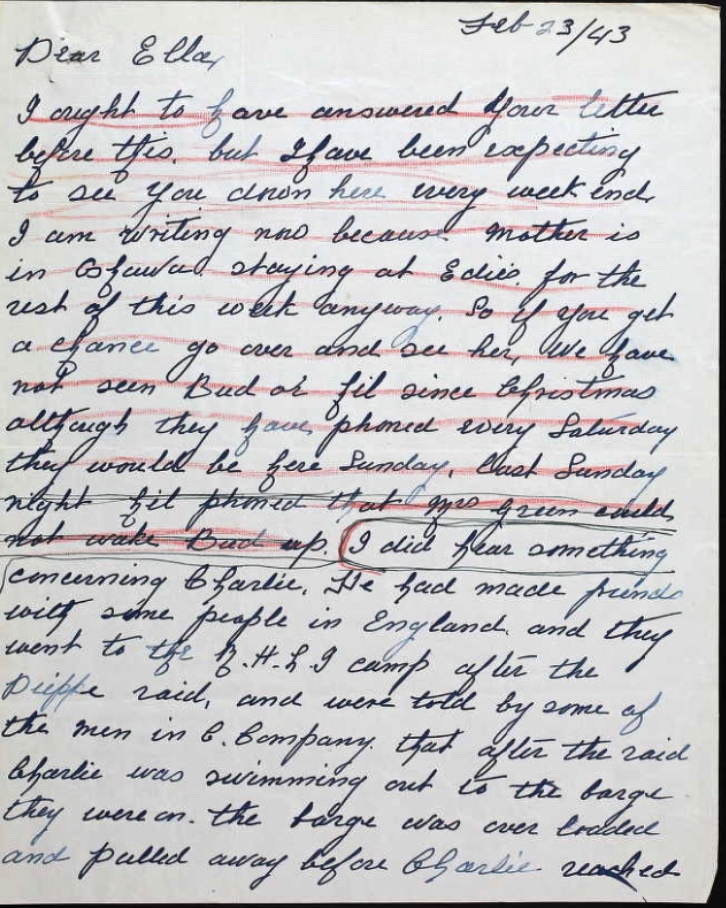 Feb 23/43
Dear Ella,
I ought to have answered your letter
before this, but I have been expecting
to see you down here every week end.
I am writing now because Mother is
in Oshawa. staying at Edies for the
rest of this week anyway. So if you get
a chance go over and see her, We have
not seen Bud or Lil since Christmas
although they have phoned every Saturday
they would be here Sunday, Last Sunday
night Lil phoned that Mrs Green could
not wake Bud up. I did hear something
concerning Charlie. He had made friends
with some people in England. and they
went to the R.H.L.I camp after the
Dieppe raid, and were told by some of
the men in C. Company. that after the raid
Charlie was swimming out to the barge
they were on. the barge was over loaded
and pulled away before Charlie reached